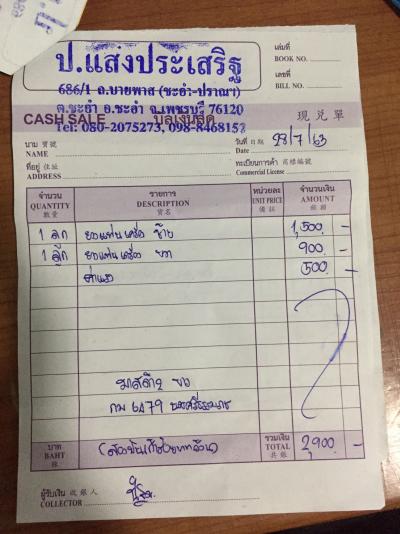 ป.แสงประเสริฐ
686/1 ถ.บายพาส (ชะอำ-ปราณฯ)
ต.ชะอำ อ.ชะอำ จ.เพชรบุรี 76120
Tel: 080-2075273, 098-8468152
เล่มที่
BOOK NO.
เลขที่
BILL NO.
CASH SALE บิลเงินสด 現兌單
นาม 寶號
NAME
วันที่ 日期
Date 23/7/63
ที่อยู่ 住址
ADDRESS
ทะเบียนการค้า 商標編號
Commercial License
จำนวน รายการ หน่วยละ จำนวนเงิน
QUANTITY DESCRIPTION UNIT PRICE AMOUNT
數量 貨名 備註 銀額
1 ลูก ยางแท่นเครื่อง ซ้าย 1,500 -
1 ลูก ยางแท่นเครื่อง ขวา 900 -
ค่าแรง 500 -
มาสด้า2 ขาว
กม 6479 นครศรีธรรมราช
บาท
BAHT
銖
(สองพันเก้าร้อยบาทถ้วน)
รวมเงิน
TOTAL
共銀
2,900 -
ผู้รับเงิน 收銀人
COLLECTOR